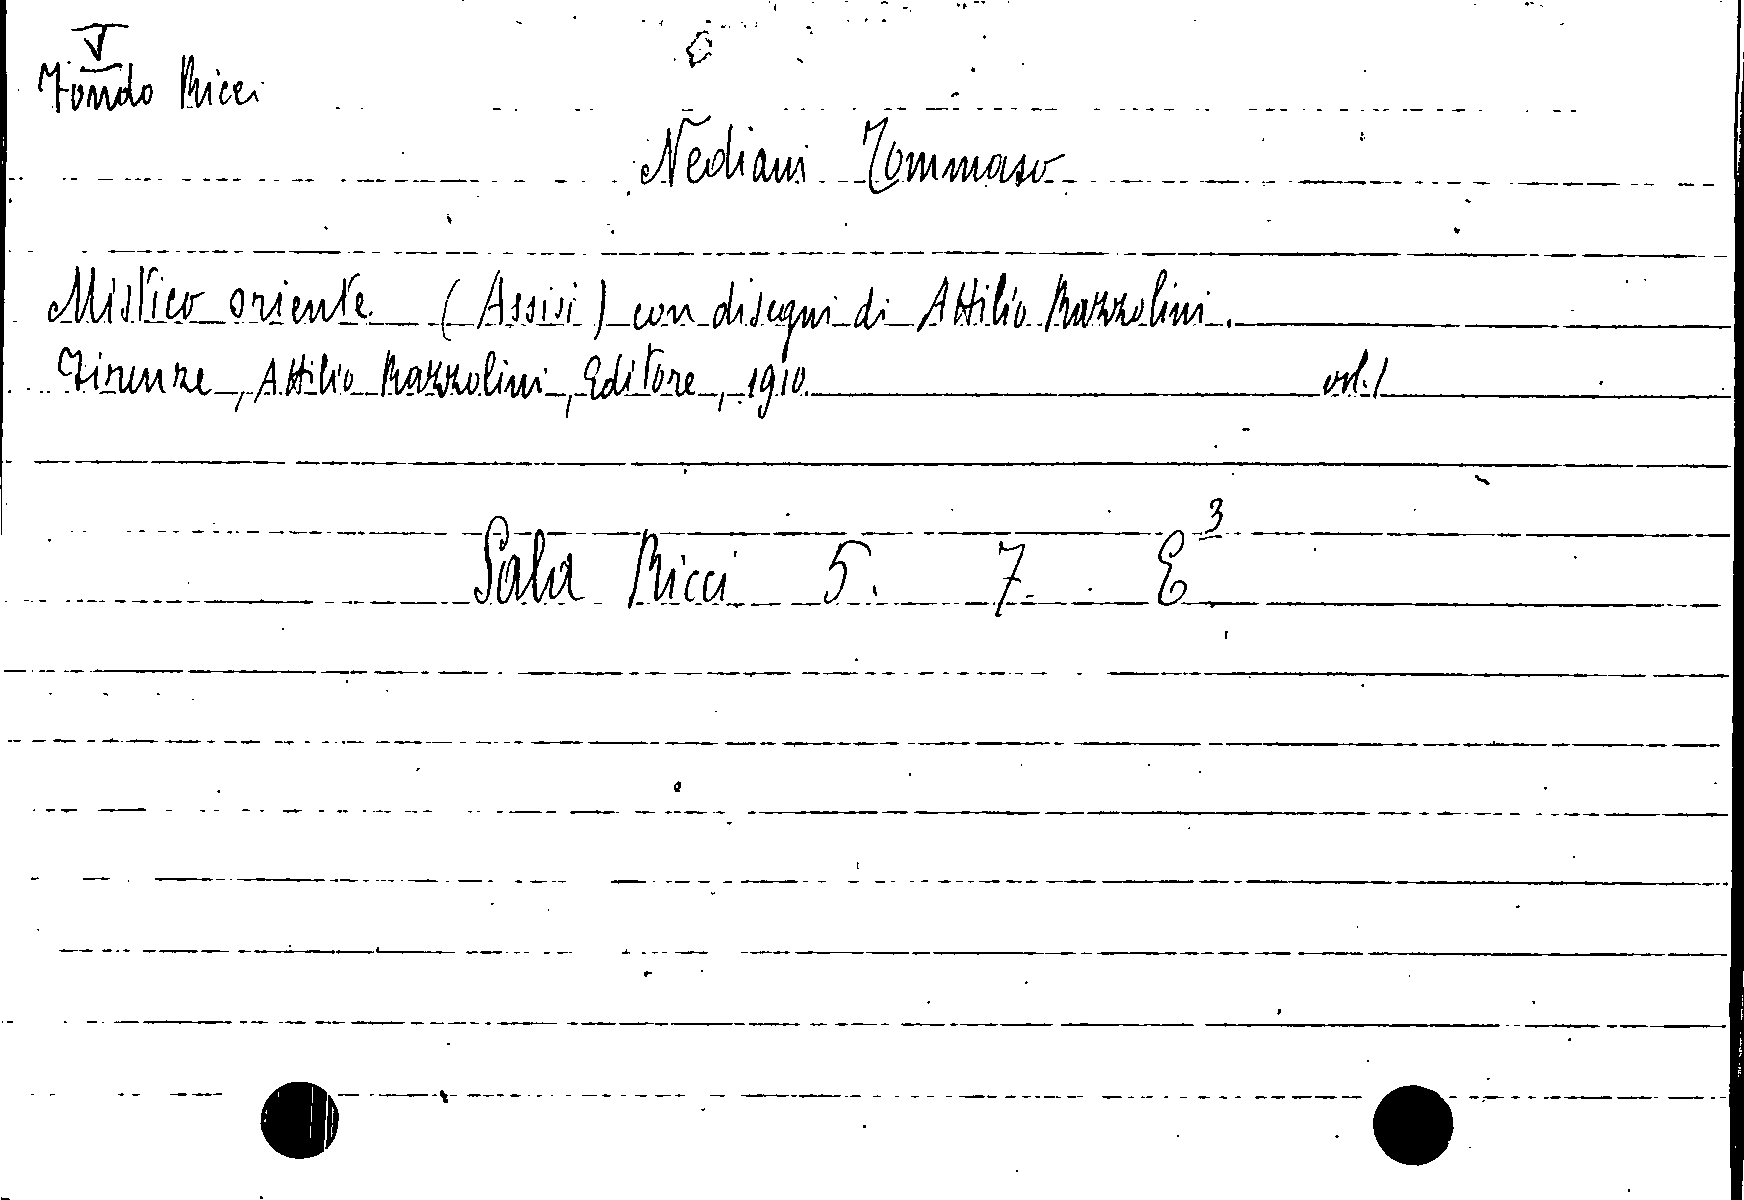 V
Fondo Ricci
Nediani Tommaso
Mistico oriente (Assisi) con disegni di Attilio Razzolini.
Firenze, Attilio Razzolini, Editore, 1910. vol. 1
Sala Ricci 5. 7. E³